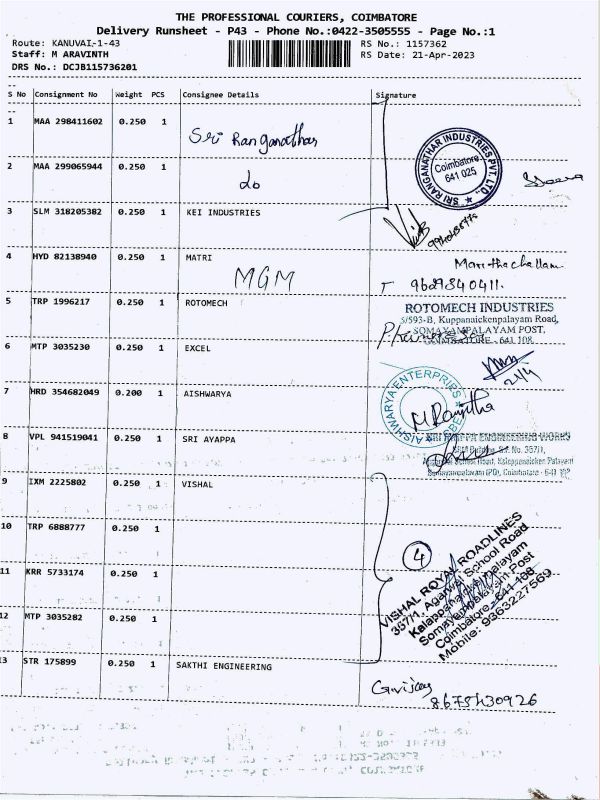 THE PROFESSIONAL COURIERS, COIMBATORE
Delivery Runsheet - P43 - Phone No.:0422-3505555 - Page No.:1
Route: KANUVAI-1-43 RS No.: 1157362
Staff: M ARAVINTH RS Date: 21-Apr-2023
DRS No.: DCJB115736201
S No Consignment No Weight PCS Consignee Details Signature
1 MAA 298411602 0.250 1 Sri Ranganathar
SRI RANGANATHAR INDUSTRIES PVT. LTD.
Coimbatore
641 025
2 MAA 299065944 0.250 1 do
3 SLM 318205382 0.250 1 KEI INDUSTRIES
4 HYD 82138940 0.250 1 MATRI
MGM
5 TRP 1996217 0.250 1 ROTOMECH
ROTOMECH INDUSTRIES
5/593-B, Kuppanaickenpalayam Road,
SOMAYAMPALAYAM POST,
COIMBATORE - 641 108
6 MTP 3035230 0.250 1 EXCEL
7 HRD 354682049 0.200 1 AISHWARYA
AISHWARYA ENTERPRISES
8 VPL 941519041 0.250 1 SRI AYAPPA
9 IXM 2225802 0.250 1 VISHAL
10 TRP 6888777 0.250 1
4
11 KRR 5733174 0.250 1
VISHAL ROYAL ROADLINES
357/1, Agarwal School Road
Kalappanaickenpalayam
Somayampalayam Post
Coimbatore - 641 108
Mobile: 9363227569
12 MTP 3035282 0.250 1
13 STR 175899 0.250 1 SAKTHI ENGINEERING